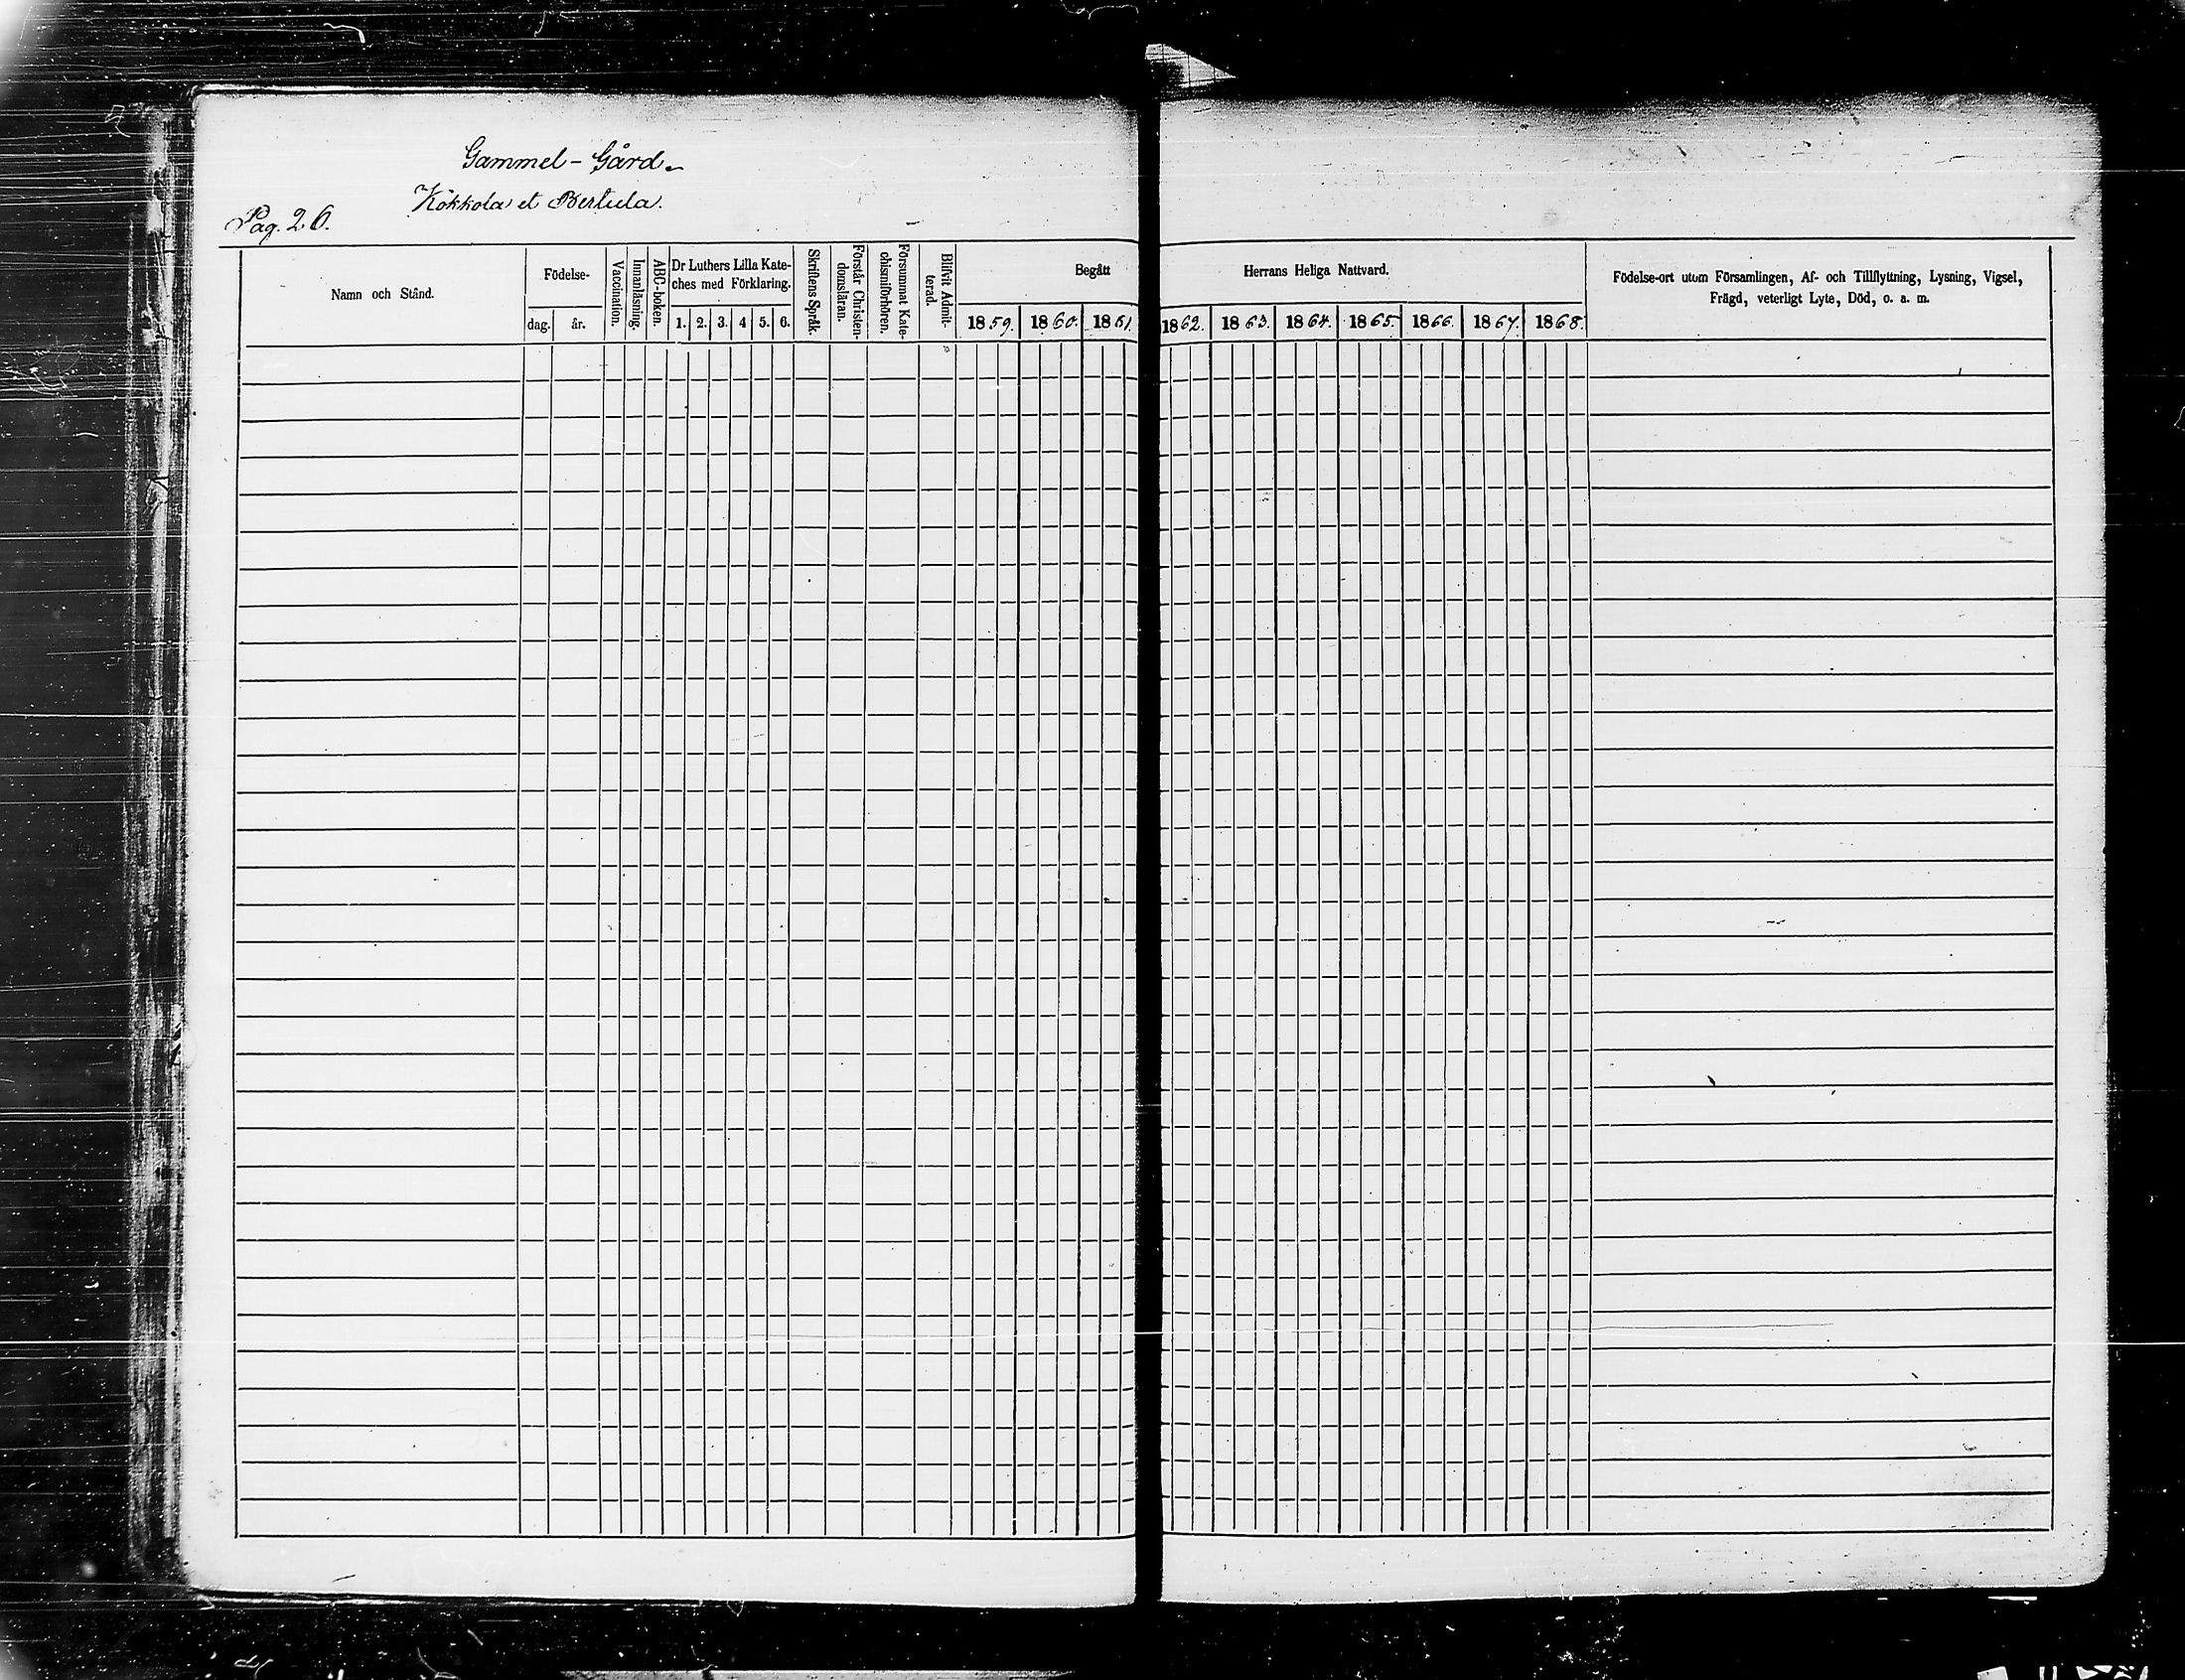 Gammel-Gård.
Kökkola et Bertula.
Pag. 26.
Namn och Stånd.
Födelse-
dag.
år.
Vaccination.
Innanläsning.
ABC-boken.
Dr Luthers Lilla Kate-
ches med Förklaring.
1. 2. 3. 4 5. 6.
Skriftens Språk.
Förstår Christen-
domsläran.
Försummat Kate-
chismiförhören.
Blifvit Admit-
terad.
Begått
1859. 1860. 1861.
Herrans Heliga Nattvard.
1862. 1863. 1864. 1865. 1866. 1867. 1868.
Födelse-ort utom Församlingen, Af- och Tillflyttning, Lysning, Vigsel,
Frägd, veterligt Lyte, Död, o. a. m.